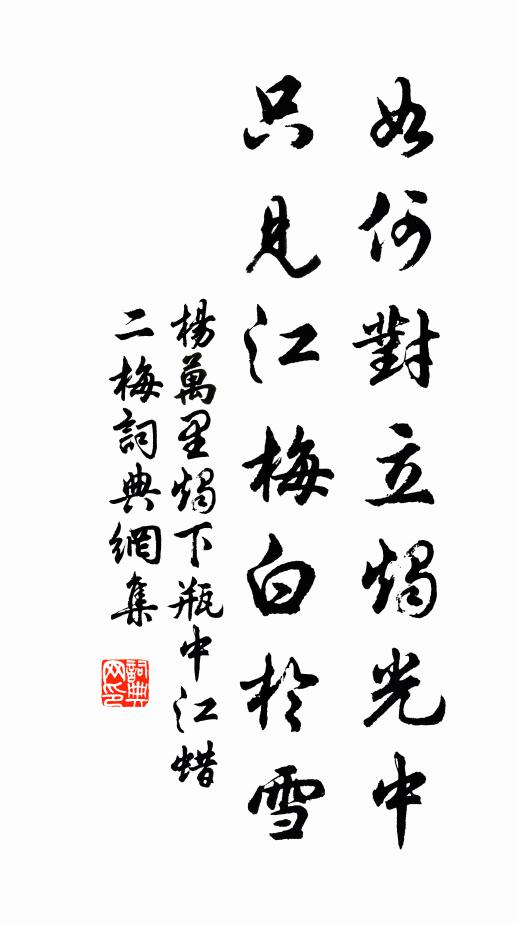 如何對立燭光中
只見江梅白於雪
楊萬里燭下瓶中江蜡
二梅詞典網集
詞典网印